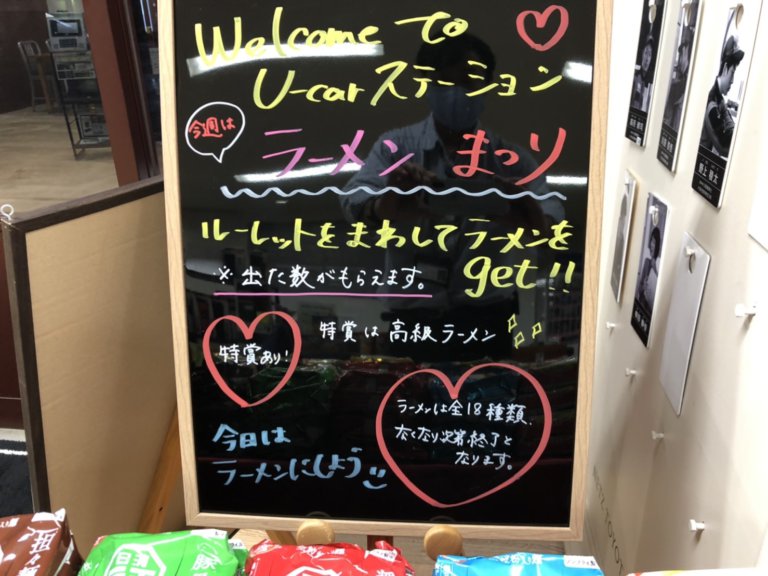 Welcome to
U-carステーション
今週は
ラーメン まつり
ルーレットをまわしてラーメンを
get!!
※ 出た数がもらえます。
特賞は高級ラーメン
特賞あり!
ラーメンは全18種類、
なくなり次第終了と
なります。
今日は
ラーメンにしよう